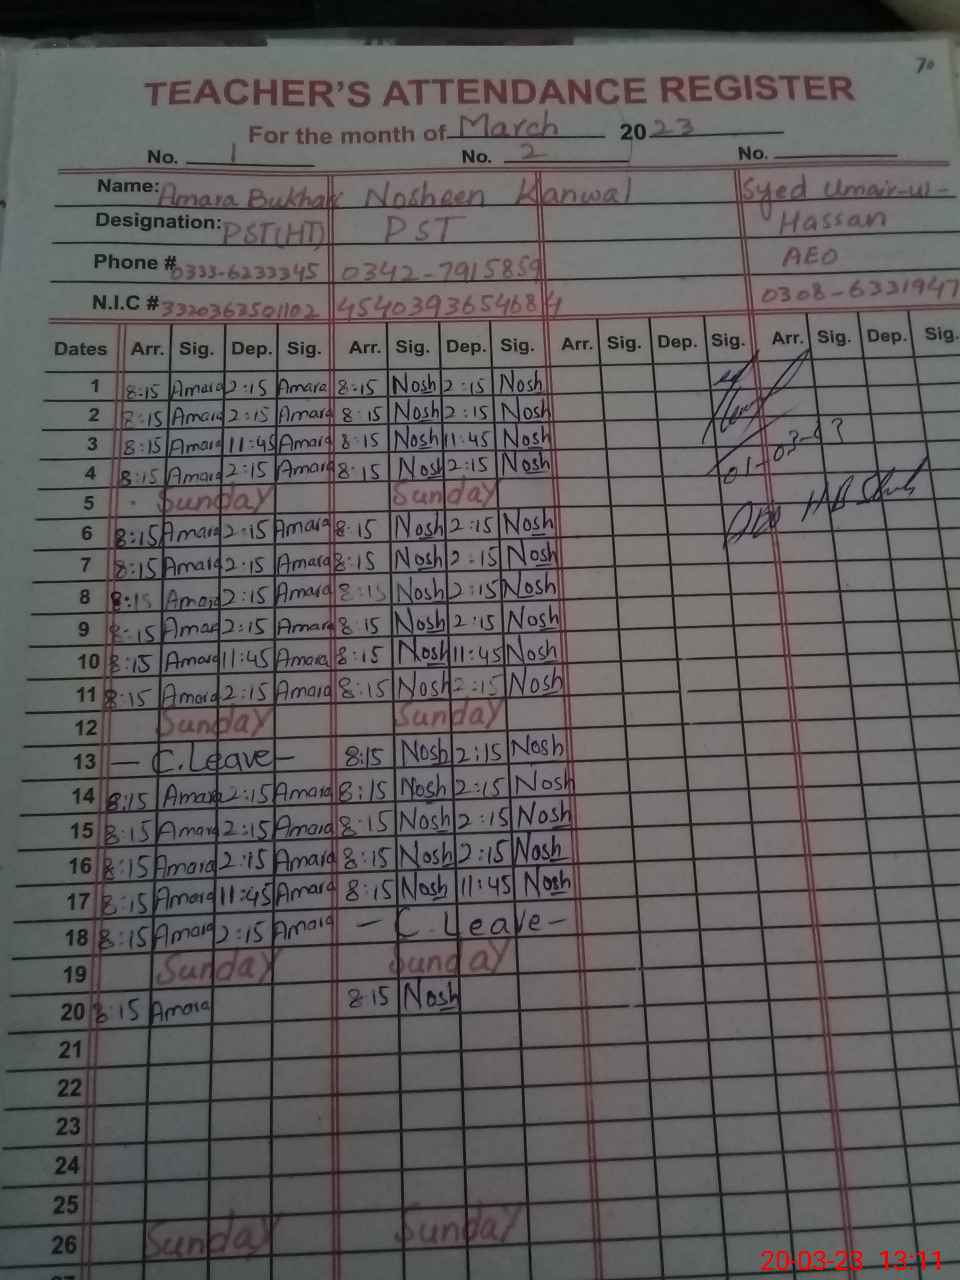 70
TEACHER'S ATTENDANCE REGISTER
For the month of March 2023
No. 1 No. 2 No.
Name: Amara Bukhari Nosheen Kanwal Syed Umair-ul-
Designation: PST(HT) PST Hassan
AEO
Phone # 0333-6233345 0342-7915859
N.I.C # 3320363501102 4540393654684 0308-6331947
Dates Arr. Sig. Dep. Sig. Arr. Sig. Dep. Sig. Arr. Sig. Dep. Sig. Arr. Sig. Dep. Sig.
1 8:15 Amara 2:15 Amara 8:15 Nosh 2:15 Nosh
2 8:15 Amara 2:15 Amara 8:15 Nosh 2:15 Nosh
3 8:15 Amara 11:45 Amara 8:15 Nosh 11:45 Nosh
4 8:15 Amara 2:15 Amara 8:15 Nosh 2:15 Nosh 01-03-23
5 Sunday Sunday
6 8:15 Amara 2:15 Amara 8:15 Nosh 2:15 Nosh
7 8:15 Amara 2:15 Amara 8:15 Nosh 2:15 Nosh
8 8:15 Amara 2:15 Amara 8:15 Nosh 2:15 Nosh
9 8:15 Amara 2:15 Amara 8:15 Nosh 2:15 Nosh
10 8:15 Amara 11:45 Amara 8:15 Nosh 11:45 Nosh
11 8:15 Amara 2:15 Amara 8:15 Nosh 2:15 Nosh
12 Sunday Sunday
13 — C.Leave — 8:15 Nosh 2:15 Nosh
14 8:15 Amara 2:15 Amara 8:15 Nosh 2:15 Nosh
15 8:15 Amara 2:15 Amara 8:15 Nosh 2:15 Nosh
16 8:15 Amara 2:15 Amara 8:15 Nosh 2:15 Nosh
17 8:15 Amara 11:45 Amara 8:15 Nosh 11:45 Nosh
18 8:15 Amara 2:15 Amara — C.Leave —
19 Sunday Sunday
20 8:15 Amara 8:15 Nosh
21
22
23
24
25
26 Sunday Sunday
20-03-23 13:11